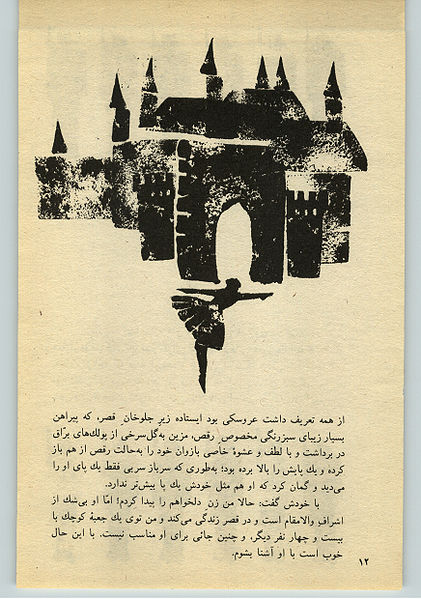 از همه تعریف داشت عروسکی بود ایستاده زیرِ جلوخانِ قصر، که پیراهن
بسیار زیبای سبزرنگی مخصوصِ رقص، مزین به‌گل‌سرخی از پولك‌های برّاق
در برداشت و با لطف و عشوهٔ خاصی بازوان خود را به‌حالت رقص از هم باز
کرده و یك پایش را بالا برده بود؛ به‌طوری که سرباز سربی فقط یك پای او را
می‌دید و گمان کرد که او هم مثل خودش یك پا بیش‌تر ندارد.
با خودش گفت: حالا من زنِ دلخواهم را پیدا کردم؛ امّا او بی‌شك از
اشرافِ والامقام است و در قصر زندگی می‌کند و من توی یك جعبهٔ کوچك با
بیست و چهار نفر دیگر، و چنین جائی برای او مناسب نیست. با این حال
خوب است با او آشنا بشوم.
۱۲